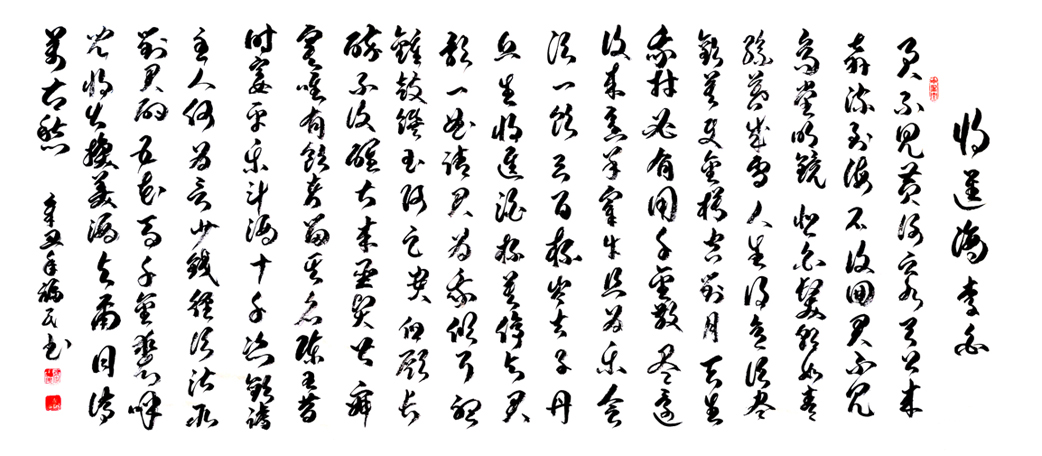 將進酒 李白
君不見黃河之水天上來
奔流到海不復回君不見
高堂明鏡悲白髮朝如青
絲暮成雪人生得意須盡
歡莫使金樽空對月天生
我材必有用千金散盡還
復來烹羊宰牛且為樂會
須一飲三百杯岑夫子丹
丘生將進酒杯莫停與君
歌一曲請君為我傾耳聽
鐘鼓饌玉何足貴但願長
醉不復醒古來聖賢皆寂
寞唯有飲者留其名陳王昔
時宴平樂斗酒十千恣歡謔
主人何為言少錢徑須沽取
對君酌五花馬千金裘呼
兒將出換美酒與爾同銷
萬古愁
辛丑年福民書